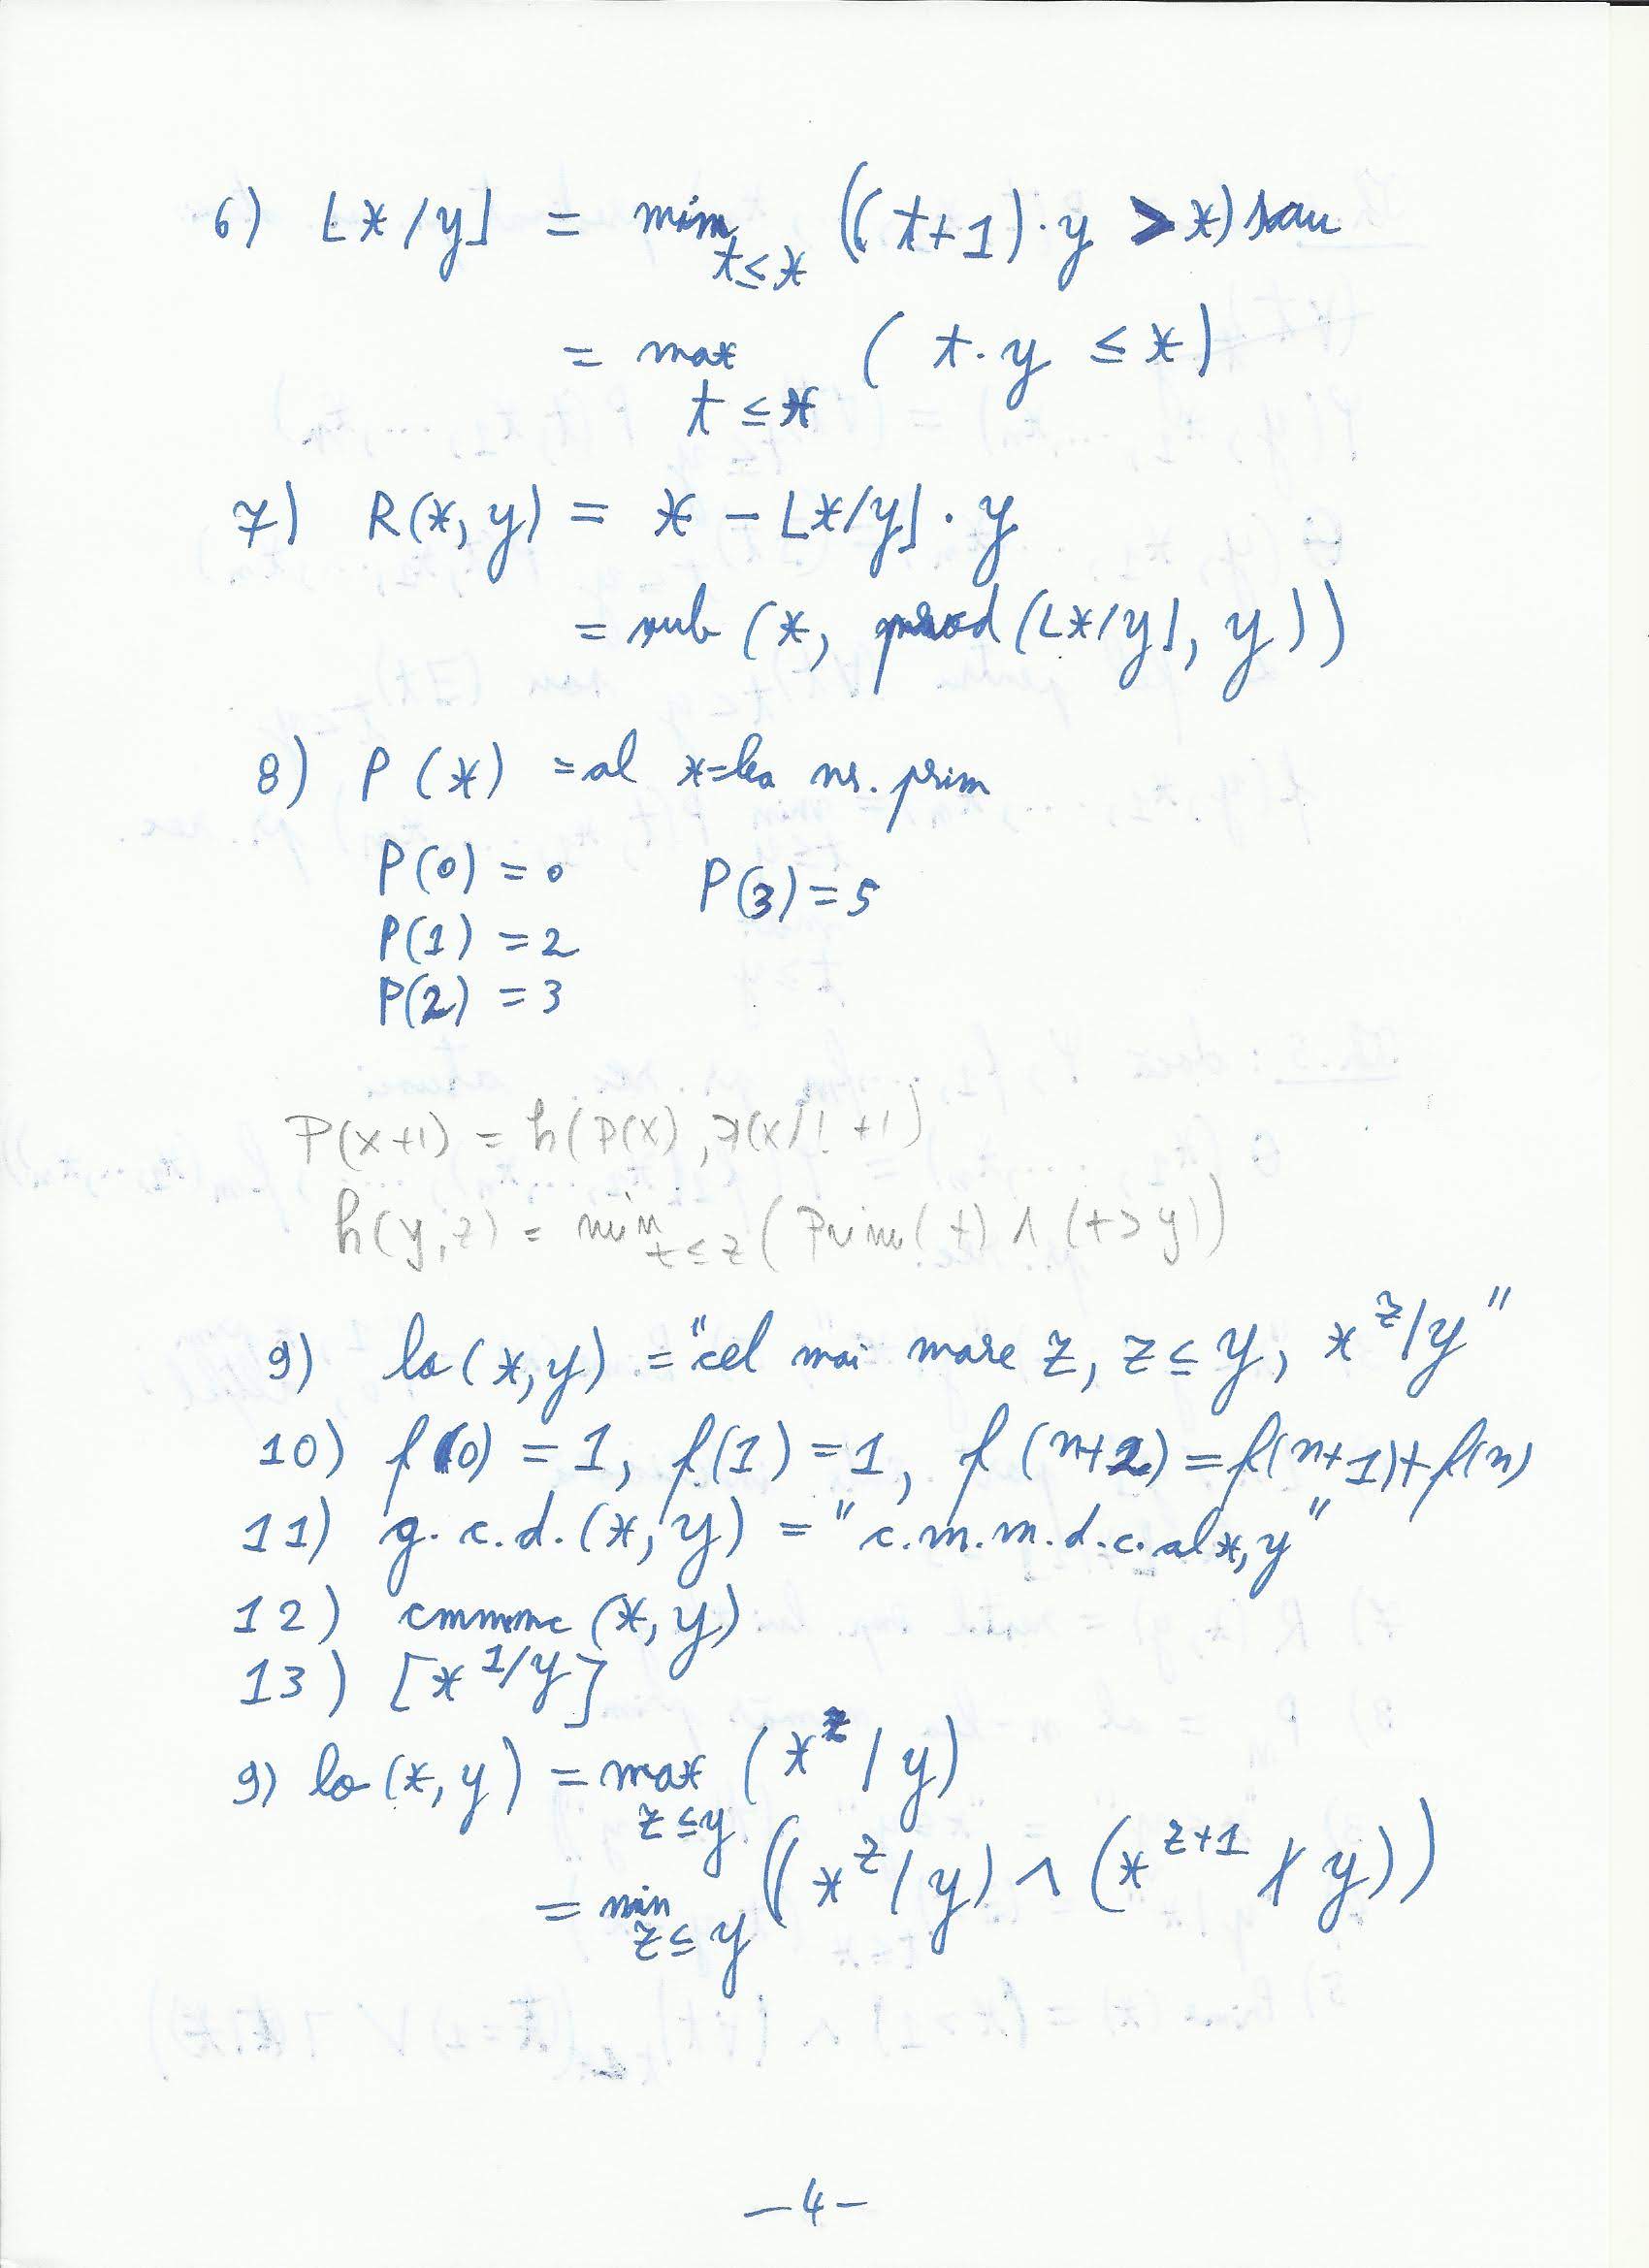 6) ⌊x/y⌋ = min ((t+1)·y > x) sau
t≤x
= max ( t·y ≤ x)
t ≤ x
7) R(x, y) = x – ⌊x/y⌋ · y
= sub (x, prod (⌊x/y⌋, y))
8) P (x) = al x-lea nr. prim
P(0) = 0 P(3) = 5
P(1) = 2
P(2) = 3
P(x+1) = h(P(x), P(x)! +1)
h(y,z) = min t≤z (Prim(t) ∧ (t>y))
9) lo(x,y) = "cel mai mare z, z≤y, x^z/y"
10) f(0) = 1, f(1) = 1, f(n+2) = f(n+1)+f(n)
11) g.c.d.(x,y) = "c.m.m.d.c. al x,y"
12) cmmmc (x,y)
13) [x^1/y]
9) lo(x,y) = max (x^z / y)
z≤y
= min ((x^z / y) ∧ (x^z+1 ∤ y))
z≤y
– 4 –